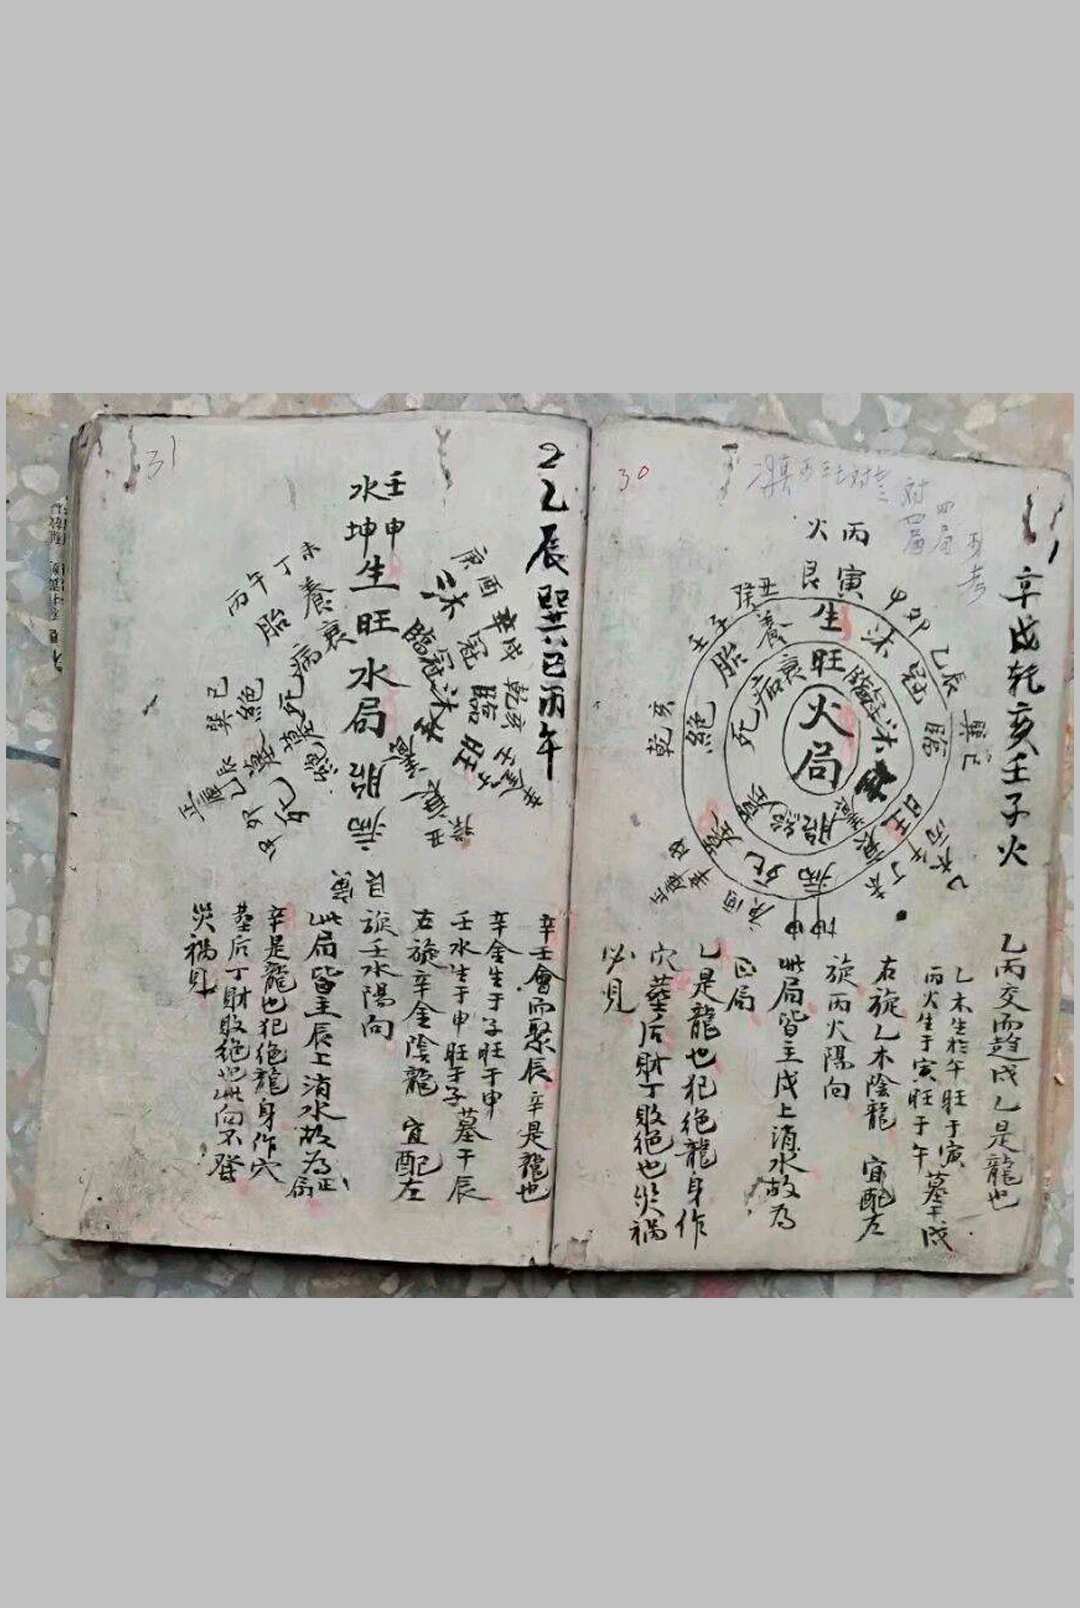 30
辛戌乾亥壬子火
火丙
艮寅
生
沐
冠
臨
旺
衰
病
死
墓
絕
胎
養
甲卯
乙辰
巽巳
坤申
庚酉
辛戌
乾亥
壬子
癸丑
旺
衰
病
死
胎
火局
乙丙交而趨戌乙是龍也
乙木生於午旺于寅
丙火生于寅旺于午墓于戌
右旋乙木陰龍宜配左
旋丙火陽向
此局皆主戌上消水故為
正局
乙是龍也犯絕龍身作
穴葬后財丁敗絕也災禍
必見
31
2乙辰巽巳丙午
水壬
坤申
生
旺
水局
胎
病
庚酉
沐
辛戌
冠
乾亥
臨
旺
癸丑
衰
丁未
養
丙午
胎
巽巳
絕
乙辰
墓
死
辛壬會而聚辰辛是龍也
辛金生于子旺于申
壬水生于申旺于子墓于辰
右旋辛金陰龍宜配左
旋壬水陽向
此局皆主辰上消水故為正局
辛是龍也犯絕龍身作穴
葬后丁財敗絕也此向不發
災禍見